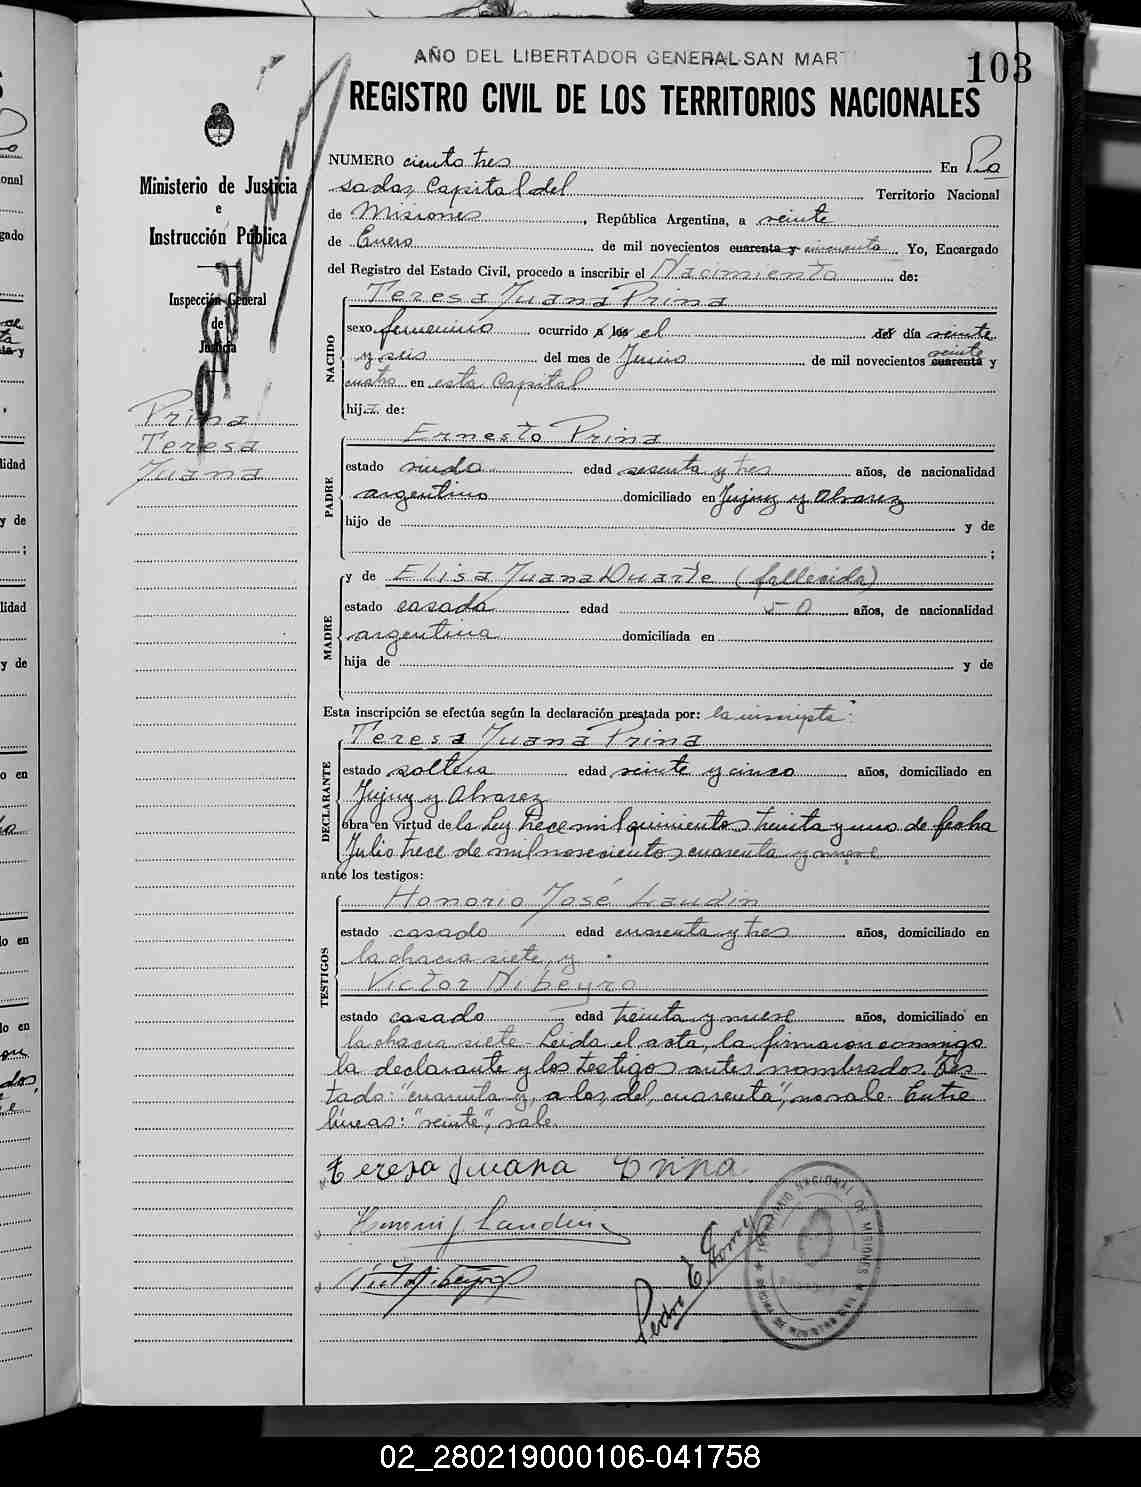 AÑO DEL LIBERTADOR GENERAL SAN MART
103
REGISTRO CIVIL DE LOS TERRITORIOS NACIONALES
Ministerio de Justicia
e
Instrucción Pública
Inspección General
de
Justicia
Prina
Teresa
Juana
NUMERO ciento tres En Po
sadas, Capital del Territorio Nacional
de Misiones, República Argentina, a veinte
de Enero de mil novecientos cuarenta y cincuenta. Yo, Encargado
del Registro del Estado Civil, procedo a inscribir el Nacimiento de:
NACIDO
Teresa Juana Prina
sexo femenino ocurrido a los el del día veinte
y seis del mes de Junio de mil novecientos cuarenta veinte y
cuatro en esta Capital
hija de:
PADRE
Ernesto Prina
estado viudo edad sesenta y tres años, de nacionalidad
argentino domiciliado en Jujuy y Alvarez
hijo de y de
;
MADRE
y de Elisa Juana Duarte (fallecida)
estado casada edad 50 años, de nacionalidad
argentina domiciliada en
hija de y de
Esta inscripción se efectúa según la declaración prestada por: la inscripta:
DECLARANTE
Teresa Juana Prina
estado soltera edad veinte y cinco años, domiciliado en
Jujuy y Alvarez
obra en virtud de la Ley trece mil quinientos treinta y uno de fecha
Julio trece de mil novecientos cuarenta y nueve
ante los testigos:
TESTIGOS
Honorio José Landin
estado casado edad cuarenta y tres años, domiciliado en
la chacra siete, y
Victor Nibeyro
estado casado edad treinta y nueve años, domiciliado en
la chacra siete - Leida el acta, la firmaron conmigo
la declarante y los testigos antes nombrados. Tes
tado: "cuarenta y, a los, del, cuarenta", no vale. Entre
líneas: "veinte", vale.
Teresa Juana Prina
Landin
Pedro E.
TERRITORIO NACIONAL DE MISIONES
02_280219000106-041758